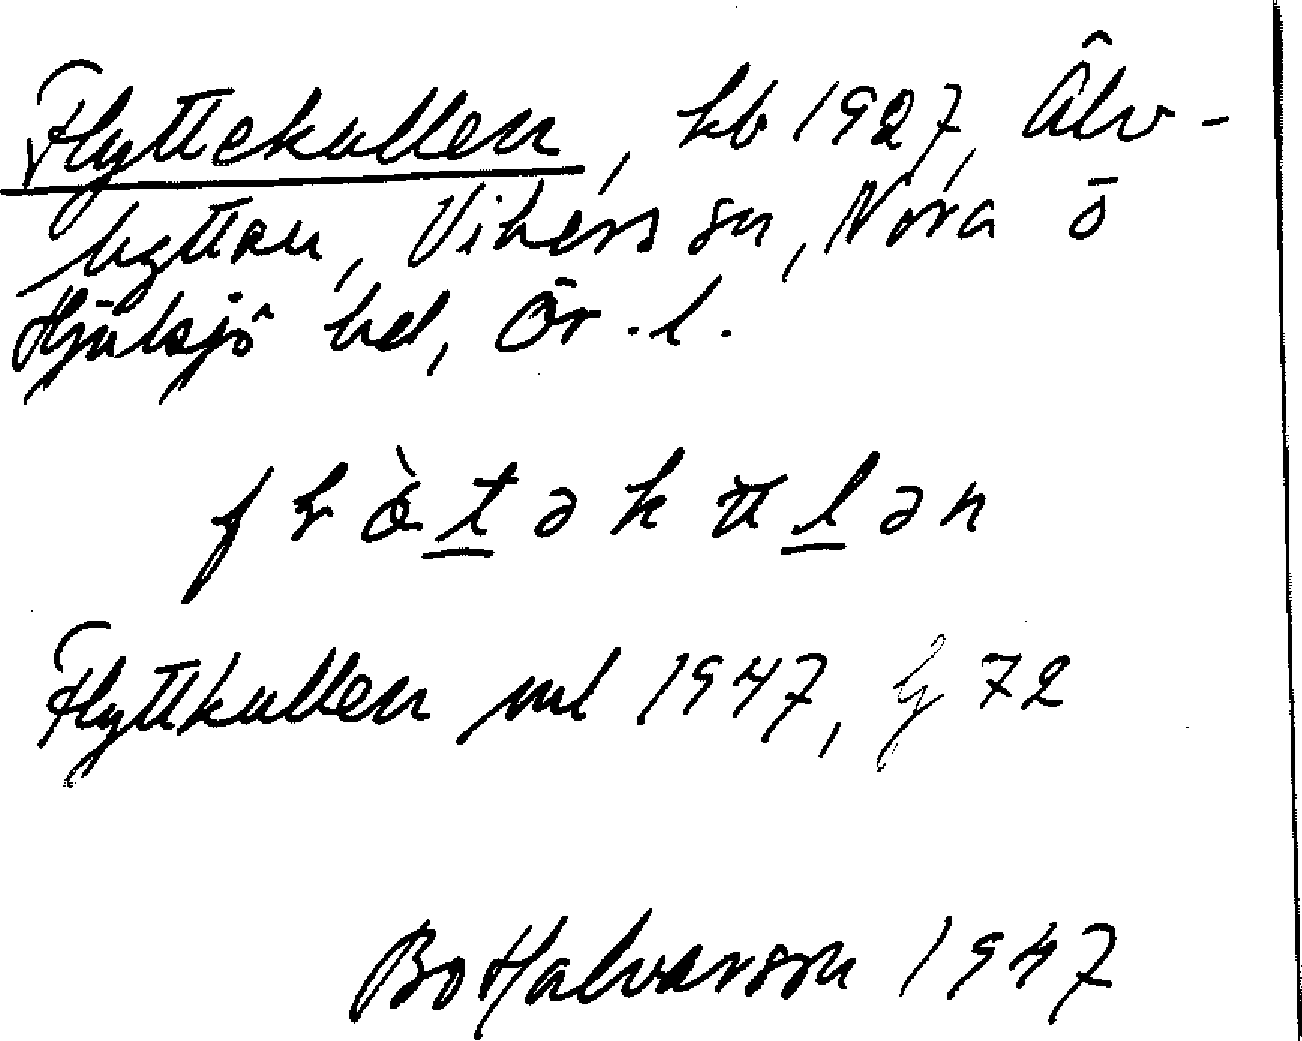 Flyttekullen, kb 1927, Älv-
hyttan, Vikers sn, Nora o
Hjulsjö hd, Ör. l.
Flyttkullen ml 1947, g 72
Bo Halvarson 1947